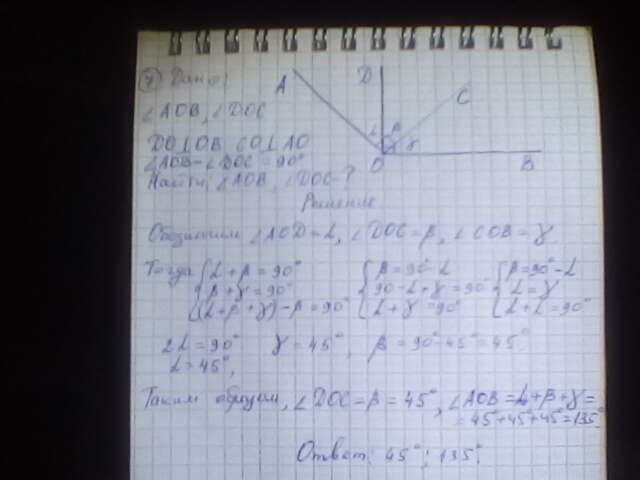 7 Дано:
∠AOB, ∠DOC
DO⊥OB, CO⊥AO
∠AOB-∠DOC=90°
Найти: ∠AOB, ∠DOC-?
A D C
α β γ
O B
Решение
Обозначим ∠AOD=α, ∠DOC=β, ∠COB=γ.
Тогда { α+β=90° { β=90°-α { β=90°-α
β+γ=90° 90-α+γ=90° α=γ
(α+β+γ)-β=90° α+γ=90° α+α=90°
2α=90° γ=45°, β=90°-45°=45°
α=45°,
Таким образом, ∠DOC=β=45°, ∠AOB=α+β+γ=
=45°+45°+45°=135°
Ответ: 45°; 135°.